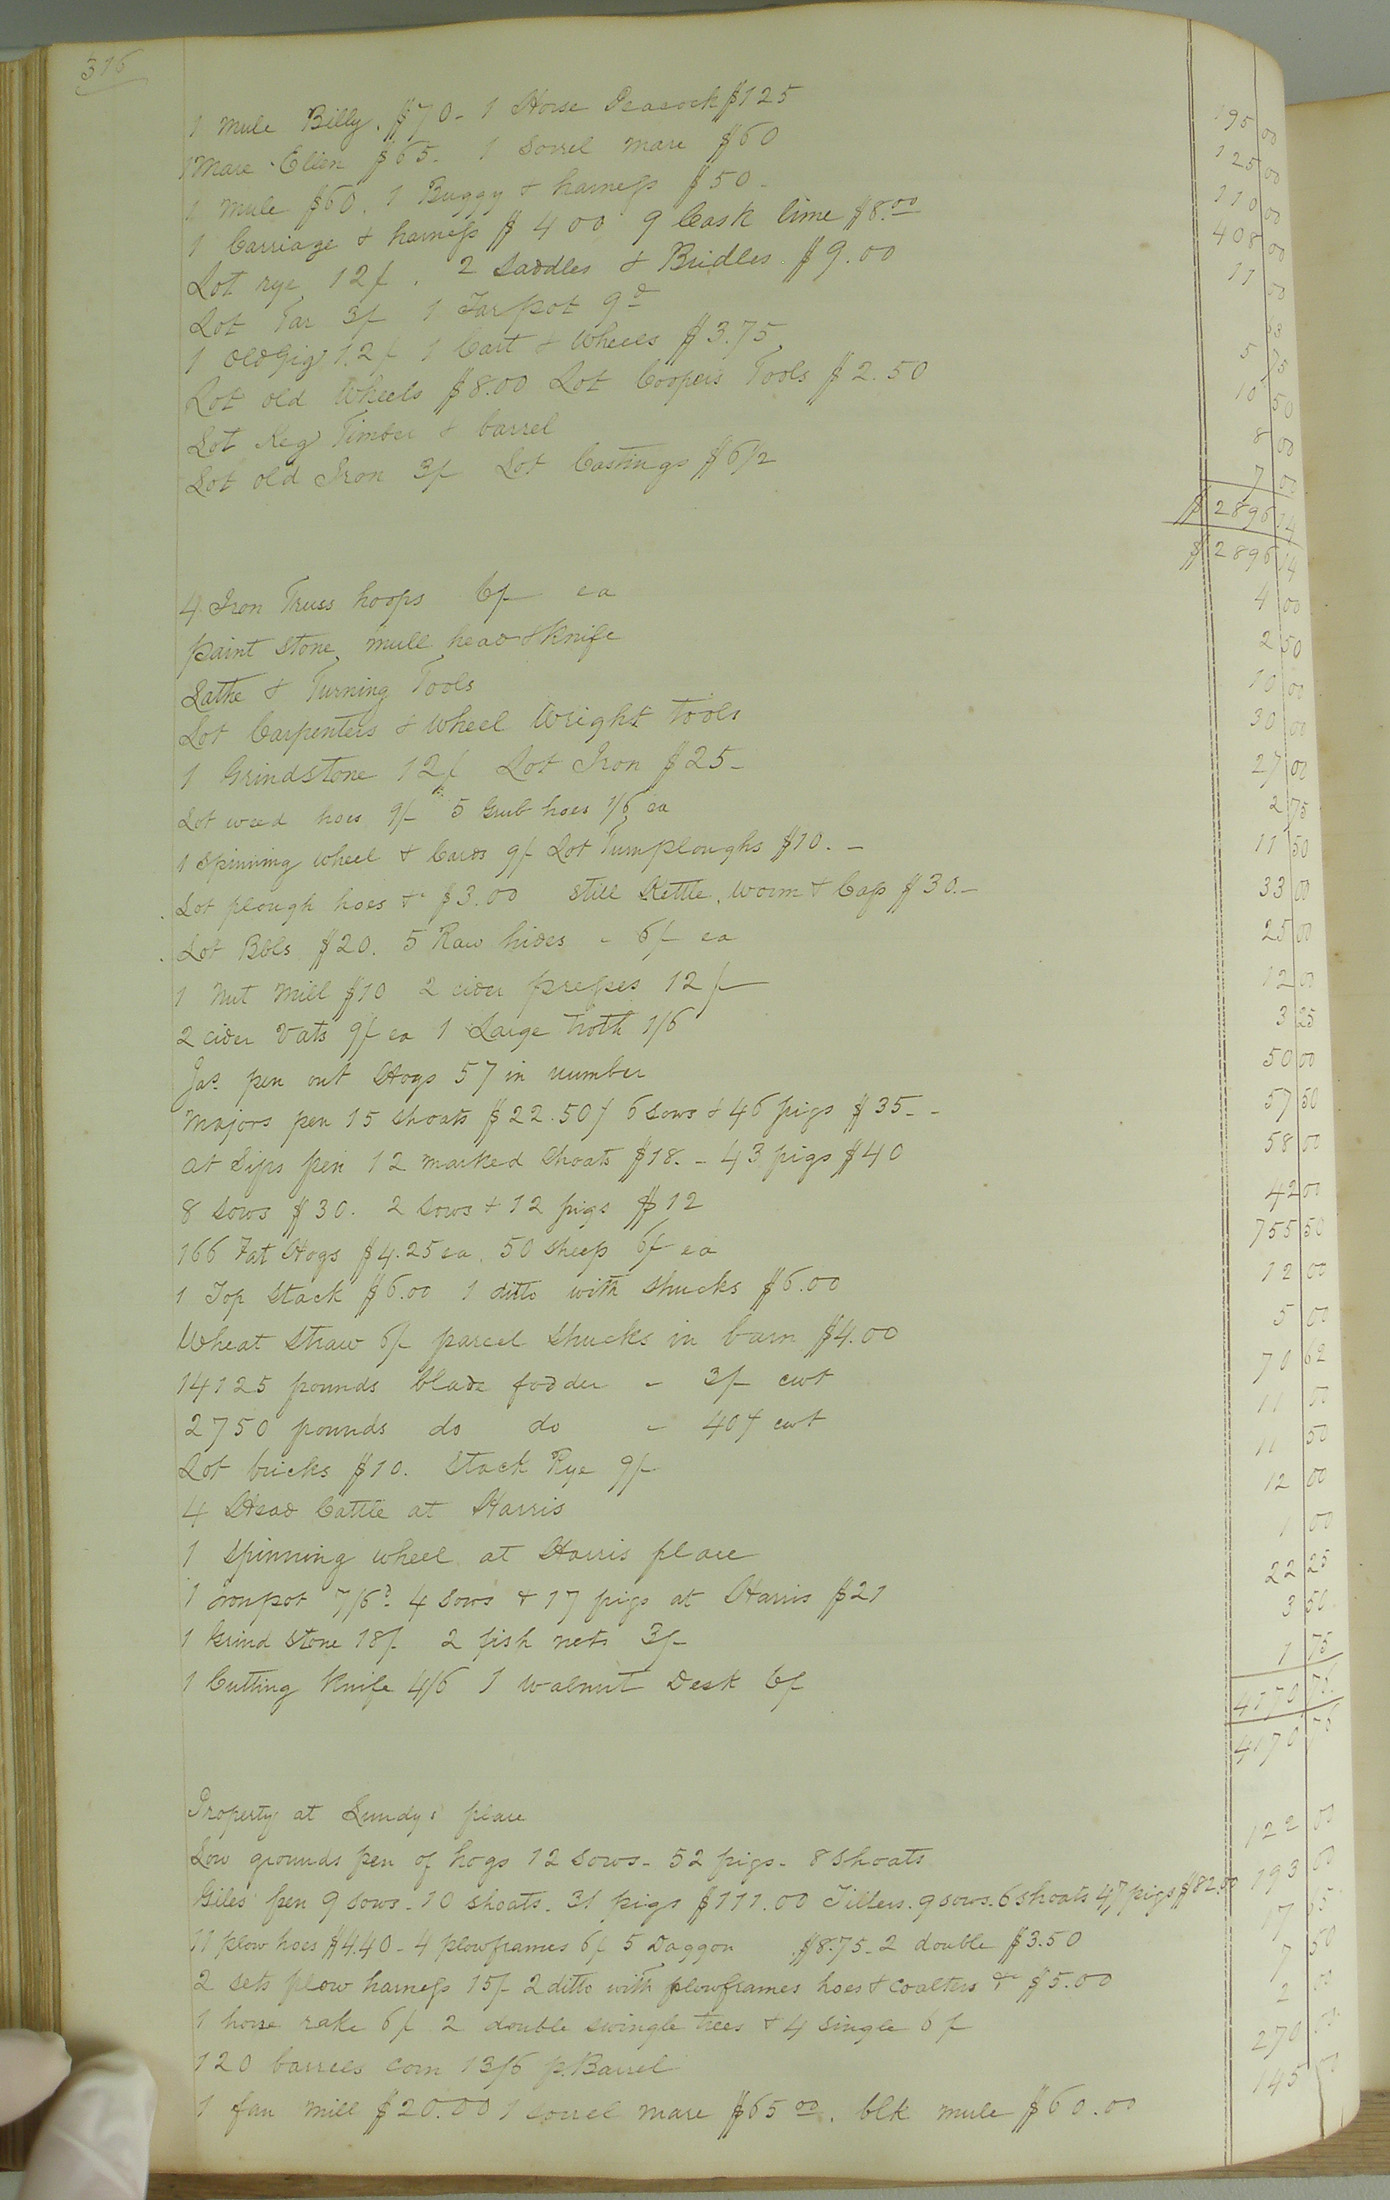 376
1 Mule Billy. $70 - 1 Horse Peacock $125 195 00
1 Mare Ellen $65. 1 Sorrel mare $60 125 00
1 Mule $60. 1 Buggy & harness $50 - 110 00
1 Carriage & harness $400 9 Cask lime $8.00 408 00
Lot rye 12/. 2 Saddles & Bridles $9.00 11 00
Lot Tar 3/ 1 Tar pot 9d 63
1 Old Gig 12/ 1 Cart & Wheels $3.75 5 75
Lot old Wheels $8.00 Lot Coopers Tools $2.50 10 50
Lot Keg Timber & barrel 8 00
Lot old Iron 3/ Lot Castings $6 1/2 7 00
$2896 14
$2896 14
4 Iron Truss hoops 6/ ea 4 00
paint stone, mull head & Knife 2 50
Lathe & Turning Tools 10 00
Lot Carpenters & Wheel Wright tools 30 00
1 Grindstone 12/ Lot Iron $25 - 27 00
Lot weed hoes 9/ 5 Grub hoes 1/6 ea 2 75
1 Spinning wheel & Cards 9/ Lot Turnploughs $10. - 11 50
Lot plough hoes &c $3.00 Still Kettle, worm & Cap $30. - 33 00
Lot Bbls $20. 5 Raw hides - 6/ ea 25 00
1 Nut Mill $10 2 cider presses 12/ 12 00
2 cider Vats 9/ ea 1 Large troth 1/6 3 25
Jas. pen out Hogs 57 in number 50 00
Majors pen 15 shoats $22.50/ 6 Sows & 46 pigs $35 - - 57 50
at Sips pen 12 marked shoats $18. - 43 pigs $40 58 00
8 Sows $30. 2 Sows & 12 pigs $12 42 00
166 Fat Hogs $4.25 ea. 50 Sheep 6/ ea 755 50
1 Top Stack $6.00 1 ditto with shucks $6.00 12 00
Wheat Straw 6/ parcel Shucks in barn $4.00 5 00
14125 pounds blade fodder - 3/ cwt 70 62
2750 pounds do do - 40¢ cwt 11 00
Lot bricks $10. Stack Rye 9/ 11 50
4 Head Cattle at Harris 12 00
1 Spinning wheel at Harris place 1 00
1 ironpot 7/6d. 4 Sows & 17 pigs at Harris $21 22 25
1 Grind stone 18/ 2 fish nets 3/ 3 50
1 Cutting Knife 4/6 1 walnut Desk 6/ 1 75
4170 76
4170 76
Property at Lundys place
Low grounds pen of hogs 12 Sows - 52 pigs - 8 Shoats 122 00
Giles pen 9 Sows - 10 Shoats - 31 pigs $111.00 Tillers. 9 Sows. 6 shoats 47 pigs $82.00 193 00
11 plow hoes $4.40 - 4 plowframes 6/ 5 Daggon $8.75 - 2 double $3.50 17 65
2 Sets plow harness 15/ 2 ditto with plowframes hoes & coalters &c $5.00 7 50
1 horse rake 6/ 2 double swingle trees & 4 single 6/ 2 00
120 barrels corn 13/6 p. Barrel 270 00
1 fan mill $20.00 1 sorrel mare $65 00. blk mule $60.00 145 00